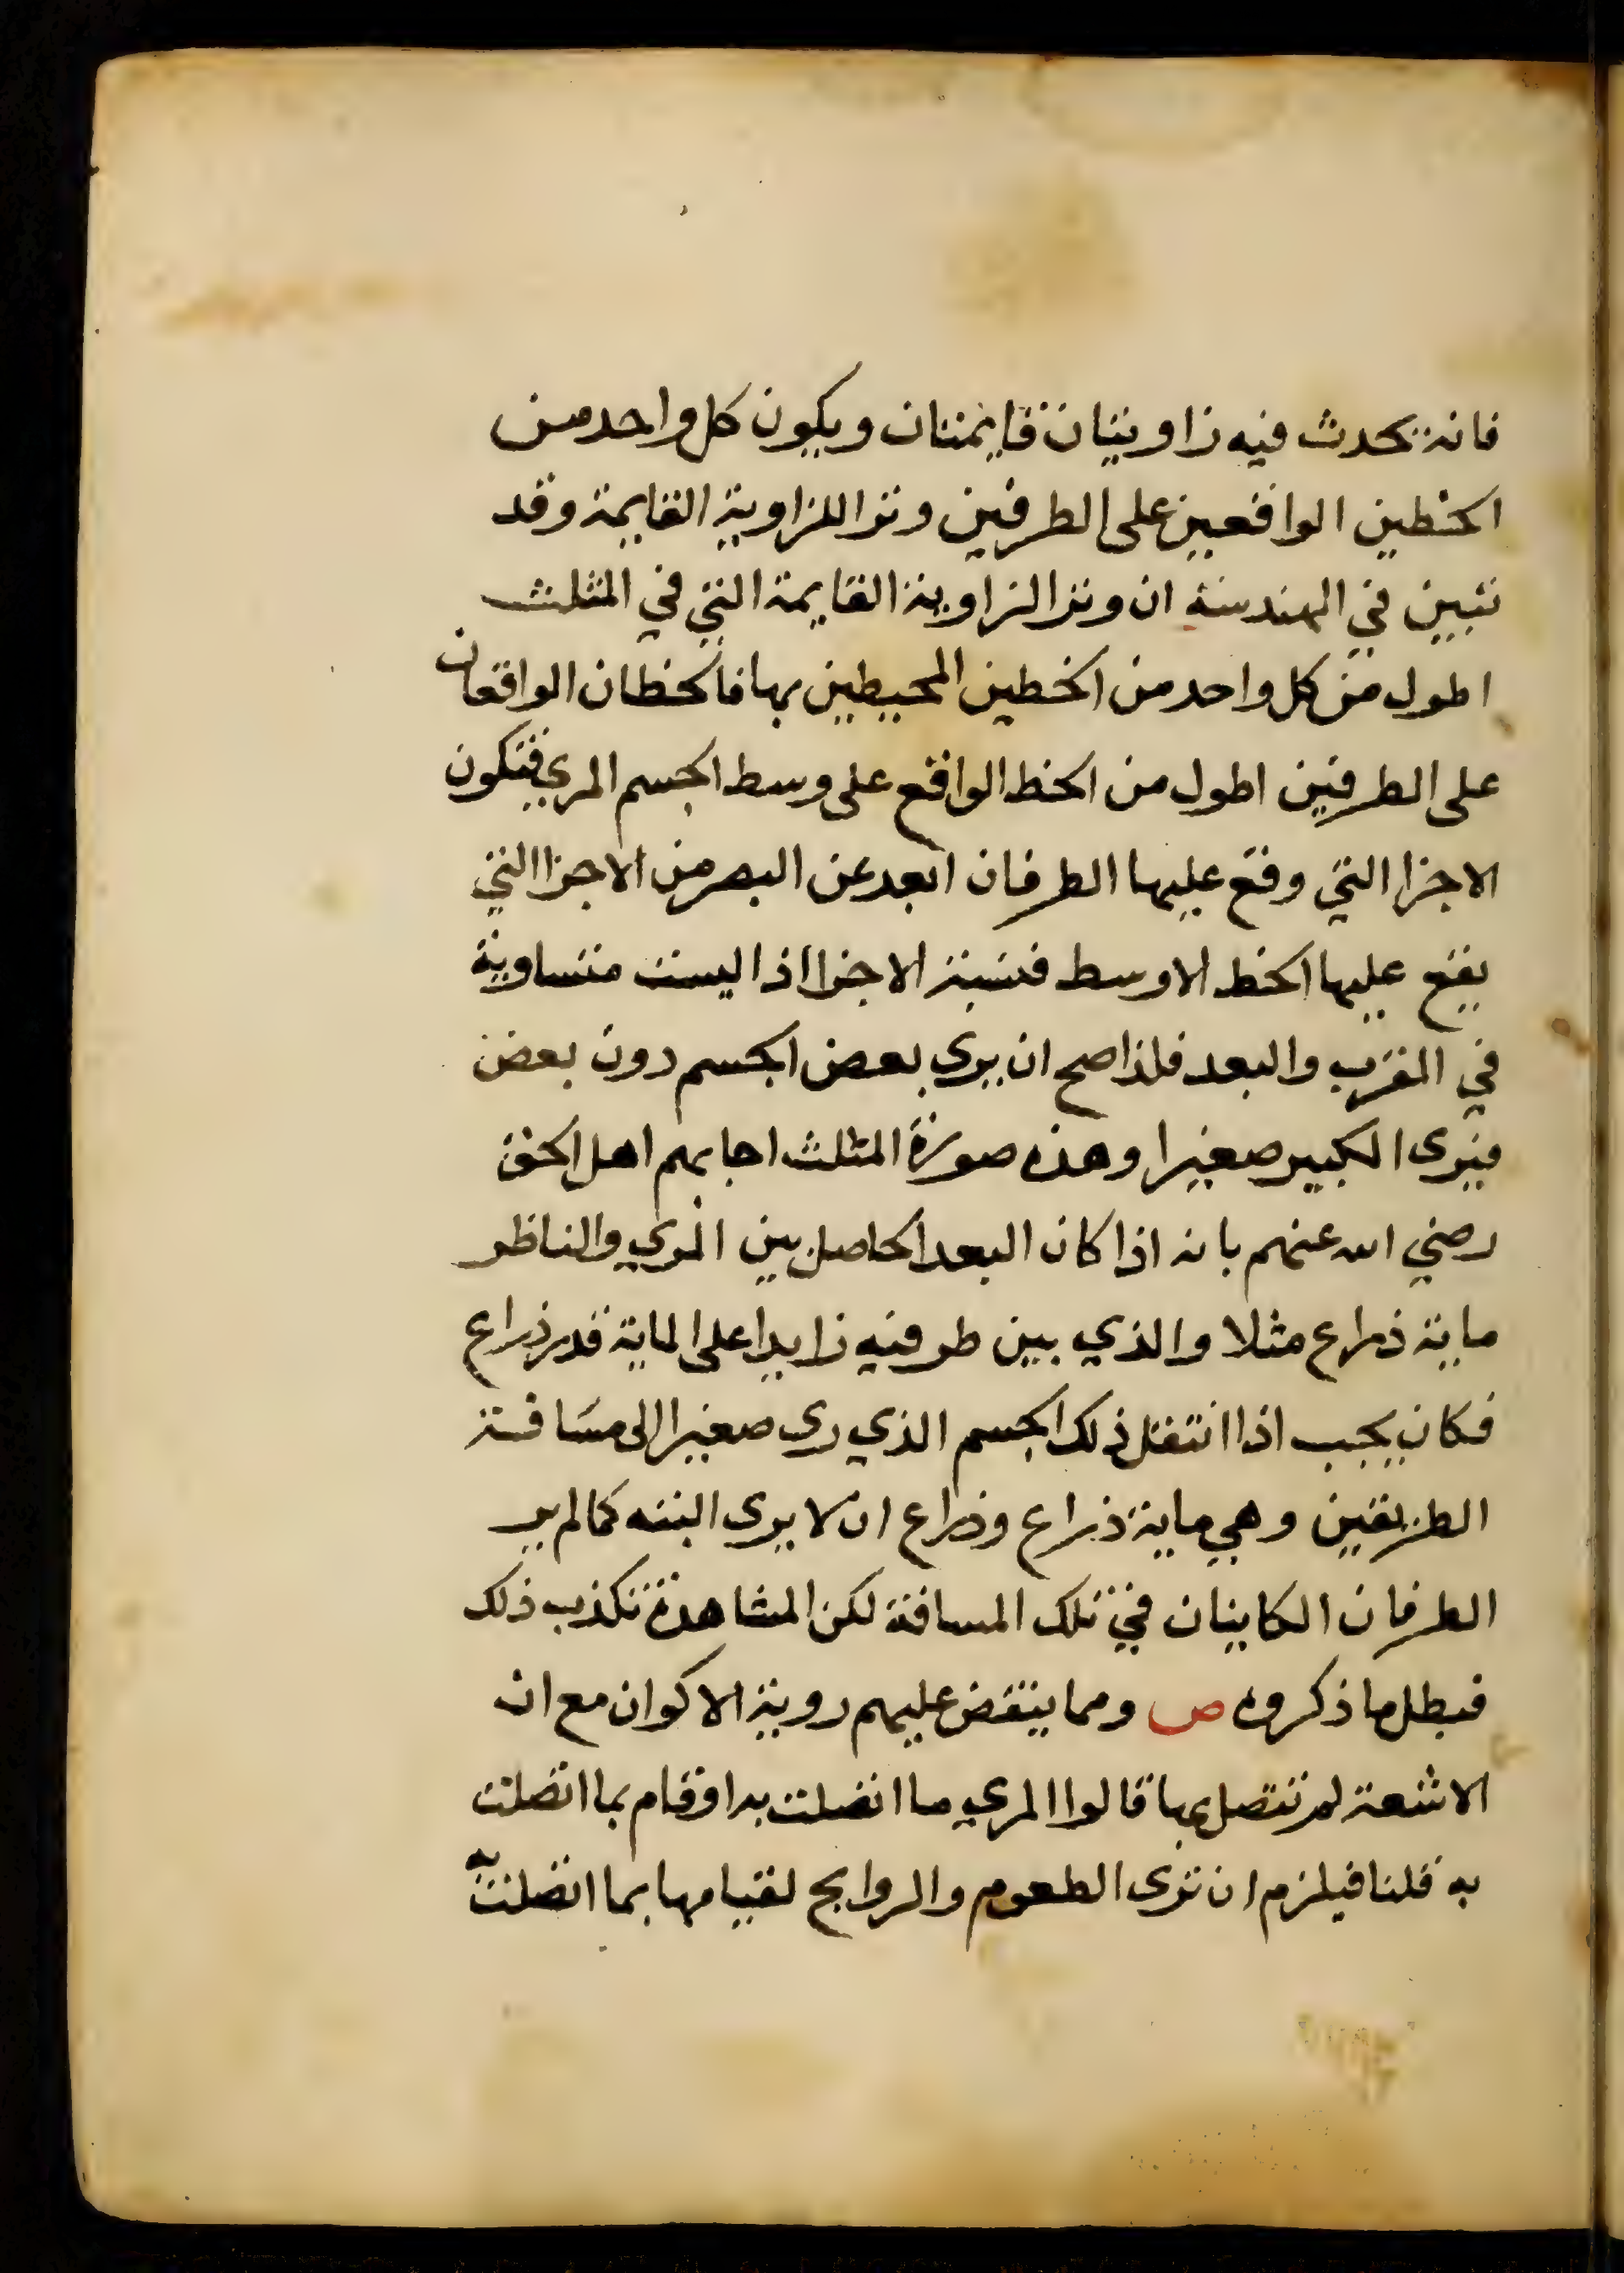 فانه يحدث فيه زاويتان قايمتان ويكون كل واحد من
الخطين الواقعين على الطرفين وتر اللزاوية القايمة وقد
تبين في الهندسة ان وتر الزاوية القايمة التي في المثلث
اطول من كل واحد من الخطين المحيطين بها فالخطان الواقعان
على الطرفين اطول من الخط الواقع على وسط الجسم المري فتكون
الاجزا التي وقع عليها الطرفان ابعد عن البصر من الاجزا التي
يقع عليها الخط الاوسط فنسبة الاجزا اذا ليست متساوية
في القرب والبعد فلذا صح ان يرى بعض الجسم دون بعض
فيرى الكبير صغيرا وهذه صورة المثلث اجابهم اهل الحق
رضي الله عنهم بانه اذا كان البعد الحاصل بين المري والناظر
ماية ذراع مثلا والذي بين طرفيه زايدا على الماية قدر ذراع
فكان يجب اذا انتقل ذلك الجسم الذي ري صغيرا الى مسافة
الطريقين وهي ماية ذراع وذراع ان لا يرى البته كما لم ير
الطرفان الكاينان في تلك المسافة لكن المشاهدة تكذب ذلك
فبطل ما ذكروه ص ومما ينقض عليهم روية الاكوان مع ان
الاشعة لم تتصل بها قالوا المري ما اتصلت به او قام بما اتصلت
به قلنا فيلزم ان ترى الطعوم والروايح لقيامها بما اتصلت به